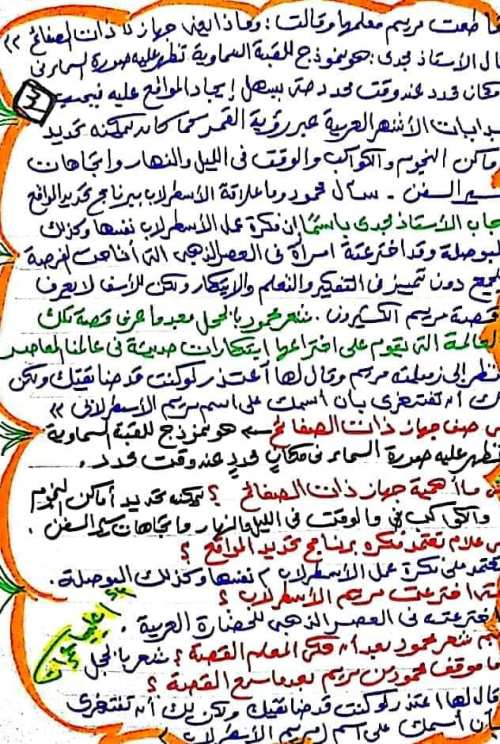 قاطعت مريم معلمها وقالت : وماذا يعني جهازًا ذات الصفائح »
قال الأستاذ مجدى : هو نموذج للقبة السماوية تظهر عليه صورة السماء فى
مكان محدد عند وقت محدد حتى يسهل إيجاد المواقع عليه فيحسب
3
بدايات الأشهر العربية عبر رؤية القمر كما كان يمكنه تحديد
أماكن النجوم والكواكب والوقت فى الليل والنهار واتجاهات
سير السفن . سأل محمود وما علاقة الأسطرلاب ببرنامج تحديد المواقع
أجاب الأستاذ مجدى باسمًا إن فكرة عمل الأسطرلاب نفسها وكذلك
البوصلة وقد اخترعته امرأة فى العصر الذهبى التى أتاحت الفرصة
للجميع دون تمييز فى التفكير والتعلم والابتكار ولكن للأسف لا يعرف
قصة مريم الكثيرون . شعر محمود بالخجل بعدما عرف قصة تلك
العالمة التى يقوم على اختراعها ابتكارات حديثة فى عالمنا المعاصر
فنظر إلى زميلته مريم وقال لها أعتذر لو كنت قد ضايقتك ولكن
لك أن تفتخرى بأن اسمك على اسم مريم الأسطرلابى »
صف جهاز ذات الصفائح ← هو نموذج للقبة السماوية
تظهر عليه صورة السماء فى مكان محدد عند وقت محدد .
ما أهمية جهاز ذات الصفائح ؟ يمكنه تحديد أماكن النجوم
والكواكب والوقت فى الليل والنهار واتجاهات سير السفن .
علام تعتمد فكرة برنامج تحديد المواقع ؟
تعتمد على فكرة عمل الأسطرلاب نفسها وكذلك البوصلة .
متى اخترعت مريم الأسطرلاب ؟
اخترعته فى العصر الذهبى للحضارة العربية .
بم شعر محمود بعد أن حكى المعلم القصة ؟ شعر بالخجل
ما موقف محمود من مريم بعد سماع القصة ؟
قال لها أعتذر لو كنت قد ضايقتك ولكن لك أن تفتخرى
بأن اسمك على اسم مريم الأسطرلابى »